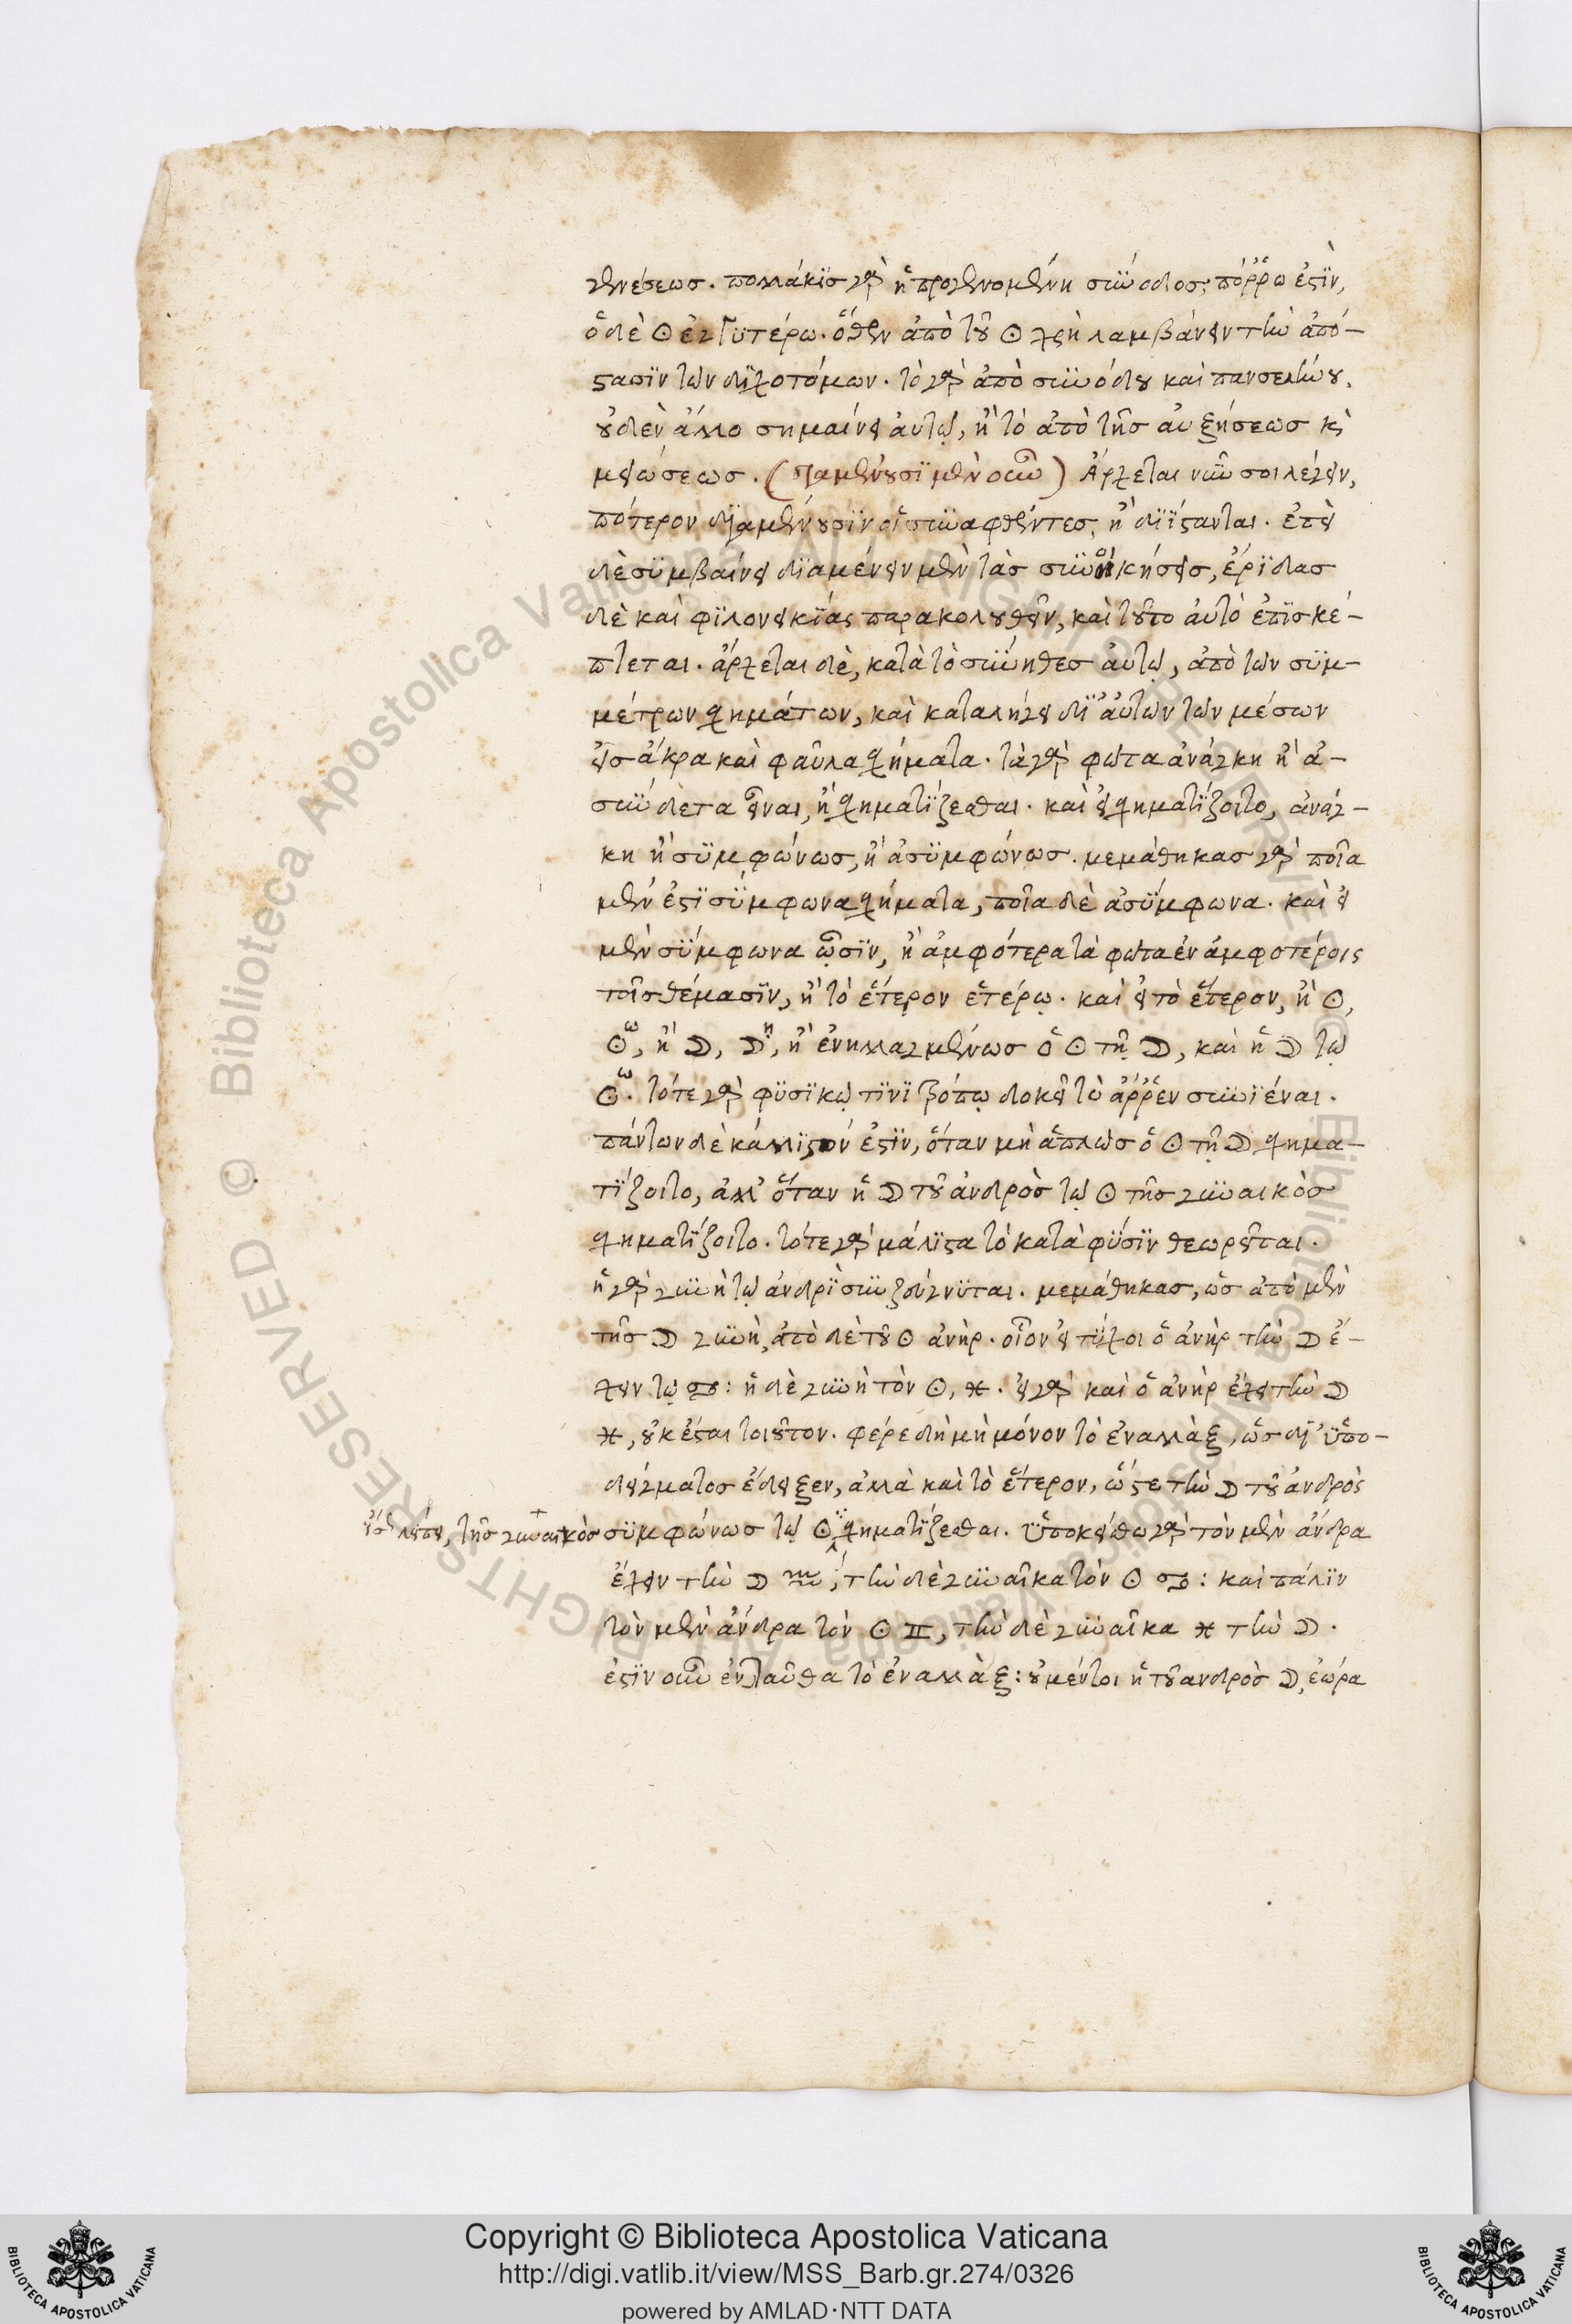 γενέσεως. πολλάκϊς γὰρ ἡ προγενομένη σϋνοδος πόῤῥω ἐστϊν,
ὁ δὲ ☉ ἐγγϋτέρω. ὅθεν ἀπὸ τοῦ ☉ χρὴ λαμβάνειν τὴν ἀπό-
στασϊν τῶν δϊχοτόμων. τὸ γὰρ ἀπὸ σϋνόδου καὶ πανσελήνου,
οὐδὲν ἄλλο σημαίνει αὐτῷ, ἢ τὸ ἀπὸ τῆς αὐξήσεως κς̀
μειώσεως. (Διαμένουσϊ μὲν οὖν) Ἄρχεται νῦν σοι λέγειν,
πότερον δϊαμένουσϊν οἱ σϋναφθέντες, ἢ δϊΐστανται. ἐπεὶ
δὲ σϋμβαίνει δϊαμένειν μὲν τὰς σϋνοικήσεις, ἔρϊδας
δὲ καὶ φϊλονεικΐας παρακολουθεῖν, καὶ τοῦτο αὐτὸ ἐπϊσκέ-
πτεται. ἄρχεται δὲ, κατὰ τὸ σϋνηθες αὐτῷ, ἀπὸ τῶν σϋμ-
μέτρων σχημάτων, καὶ καταλήγει δϊ' αὐτῶν τῶν μέσων
εἰς ἄκρα καὶ φαῦλα σχήματα. τὰ γὰρ φῶτα ἀνάγκη ἢ ἀ-
σϋνδετα εἶναι, ἢ σχηματΐζεσθαι. καὶ εἰ σχηματΐζοιτο, ἀνάγ-
κη ἢ σϋμφώνως, ἢ ἀσϋμφώνως. μεμάθηκας γὰρ ποῖα
μέν ἐστϊ σϋμφωνα σχήματα, ποῖα δὲ ἀσϋμφωνα. καὶ εἰ
μὲν σϋμφωνα ὦσϊν, ἢ ἀμφότερα τὰ φῶτα ἐν ἀμφοτέροις
τοῖς θέμασϊν, ἢ τὸ ἕτερον ἑτέρῳ. καὶ εἰ τὸ ἕτερον, ἢ ☉,
☉ῳ, ἢ ☽, ☽ῃ, ἢ ἐνηλλαγμένως ὁ ☉ τῇ ☽, καὶ ἡ ☽ τῷ
☉ῳ. τότε γὰρ φϋσϊκῷ τϊνϊ τρόπῳ δοκεῖ τὸ ἄῤῥεν σϋνϊέναι.
πάντων δὲ κάλλϊστόν ἐστϊν, ὅταν μὴ ἁπλῶς ὁ ☉ τῇ ☽ σχημα-
τΐζοιτο, ἀλλ' ὅταν ἡ ☽ τοῦ ἀνδρὸς τῷ ☉ τῆς γϋναικὸς
σχηματΐζοιτο. τότε γὰρ μάλϊστα τὸ κατὰ φϋσϊν θεωρεῖται.
ἡ γὰρ γϋνὴ τῷ ἀνδρϊ σϋζεύγνϋται. μεμάθηκας, ὡς ἀπὸ μὲν
τῆς ☽ γϋνὴ, ἀπὸ δὲ τοῦ ☉ ἀνήρ. οἷον εἰ τϋχοι ὁ ἀνὴρ τὴν ☽ ἔ-
χειν τῷ ♋: ἡ δὲ γϋνὴ τὸν ☉, ♓. εἰ γὰρ καὶ ὁ ἀνὴρ ἔχει τὴν ☽
♓, οὐκ ἔσται τοιοῦτον. φέρε δὴ μὴ μόνον τὸ ἐναλλὰξ, ὡς δϊ' ὑπο-
δείγματος ἔδειξεν, ἀλλὰ καὶ τὸ ἕτερον, ὥστε τὴν ☽ τοῦ ἀνδρὸς
ἴσ λείπει, τῆς γϋναικὸς
σϋμφώνως τῷ ☉ σχηματΐζεσθαι. ὑποκείσθω γὰρ τὸν μὲν ἄνδρα
ἔχειν τὴν ☽ ♏, τὴν δὲ γϋναῖκα τὸν ☉ ♋: καὶ πάλϊν
τὸν μὲν ἄνδρα τὸν ☉ ♊, τὴν δὲ γϋναῖκα ♓ τὴν ☽.
ἐστϊν οὖν ἐνταῦθα τὸ ἐναλλὰξ: οὐ μέντοι ἡ τοῦ ἀνδρὸς ☽, ἑώρα